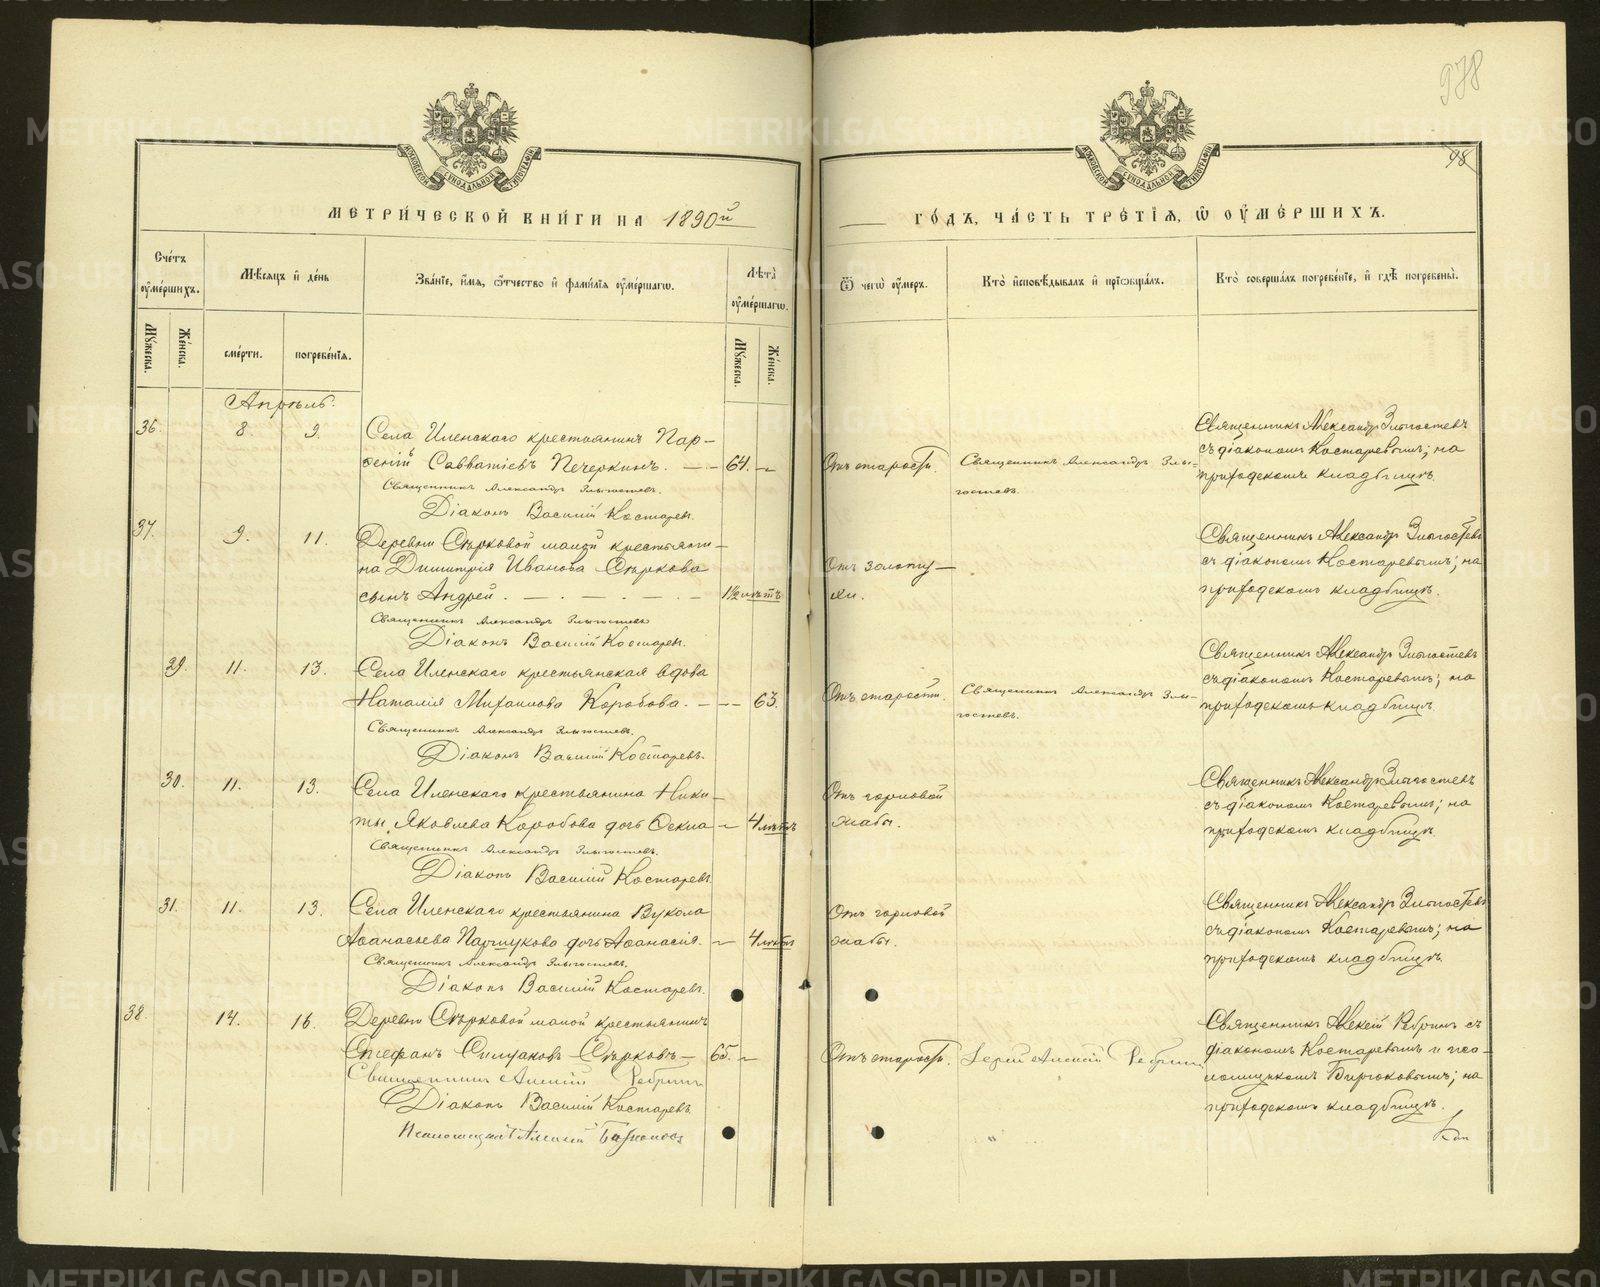 978
98
МЕТРИ́ЧЕСКОЙ КНИ́ГИ НА 1890й
ГО́ДЪ, ЧА́СТЬ ТРЕ́ТІѦ, Ѿ ОУ҆МЕ́РШИХЪ.
Сче́тъ оу҆ме́ршихъ.
Мѣ́сѧцъ и҆ де́нь
Зва́нїе, и҆́мѧ, ѻ҆́тчество и҆ фами́лїѧ оу҆ме́ршагѡ.
Лѣ́та оу҆ме́ршагѡ.
Ѿ чегѡ̀ оу҆́меръ.
Кто̀ и҆сповѣ́дывалъ и҆ прїѡбща́лъ.
Кто̀ соверша́лъ погребе́нїе, и҆ гдѣ̀ погребены̀.
Мꙋ́жеска.
Же́нска.
сме́рти.
погребе́нїѧ.
Мꙋ́жеска.
Же́нска.
Апрѣль.
36. 8. 9. Села Иленскаго крестьянинъ Пар-
ѳеній Савватіевъ Печеркинъ. — 64. —
Священникъ Александръ Злыгостевъ.
Діаконъ Василій Костаревъ.
Отъ старости.
Священникъ Александръ Злы-
гостевъ.
Священникъ Александръ Злыгостевъ
съ діакономъ Костаревымъ; на
приходскомъ кладбищѣ.
37. 9. 11. Деревни Сѣрковой малой крестьяни-
на Димитрія Иванова Сѣркова
сынъ Андрей. — 1½ лѣтъ
Священникъ Александръ Злыгостевъ
Діаконъ Василій Костаревъ.
Отъ золоту-
хи.
Священникъ Александръ Злыгостевъ
съ діакономъ Костаревымъ; на
приходскомъ кладбищѣ.
29. 11. 13. Села Иленскаго крестьянская вдова
Наталія Михаилова Коробова. — 63.
Священникъ Александръ Злыгостевъ.
Діаконъ Василій Костаревъ.
Отъ старости.
Священникъ Александръ Злы-
гостевъ.
Священникъ Александръ Злыгостевъ
съ діакономъ Костаревымъ; на
приходскомъ кладбищѣ.
30. 11. 13. Села Иленскаго крестьянина Ники-
ты Яковлева Коробова дочь Ѳекла — 4 лѣтъ
Священникъ Александръ Злыгостевъ.
Діаконъ Василій Костаревъ.
Отъ горловой
жабы.
Священникъ Александръ Злыгостевъ
съ діакономъ Костаревымъ; на
приходскомъ кладбищѣ.
31. 11. 13. Села Иленскаго крестьянина Вукола
Аѳанасьева Паршукова дочь Аѳанасія. — 4 лѣтъ
Священникъ Александръ Злыгостевъ.
Діаконъ Василій Костаревъ.
Отъ горловой
жабы.
Священникъ Александръ Злыгостевъ
съ діакономъ Костаревымъ; на
приходскомъ кладбищѣ.
38. 14. 16. Деревни Сѣрковой малой крестьянинъ
Стефанъ Сѣрковъ — 65. —
Священникъ Алексій Ребринъ
Діаконъ Василій Костаревъ.
Псаломщикъ Алексій Бирюковъ
Отъ старости.
Іерей Алексій Ребринъ
Священникъ Алексій Ребринъ съ
діакономъ Костаревымъ и пса-
ломщикомъ Бирюковымъ; на
приходскомъ кладбищѣ.